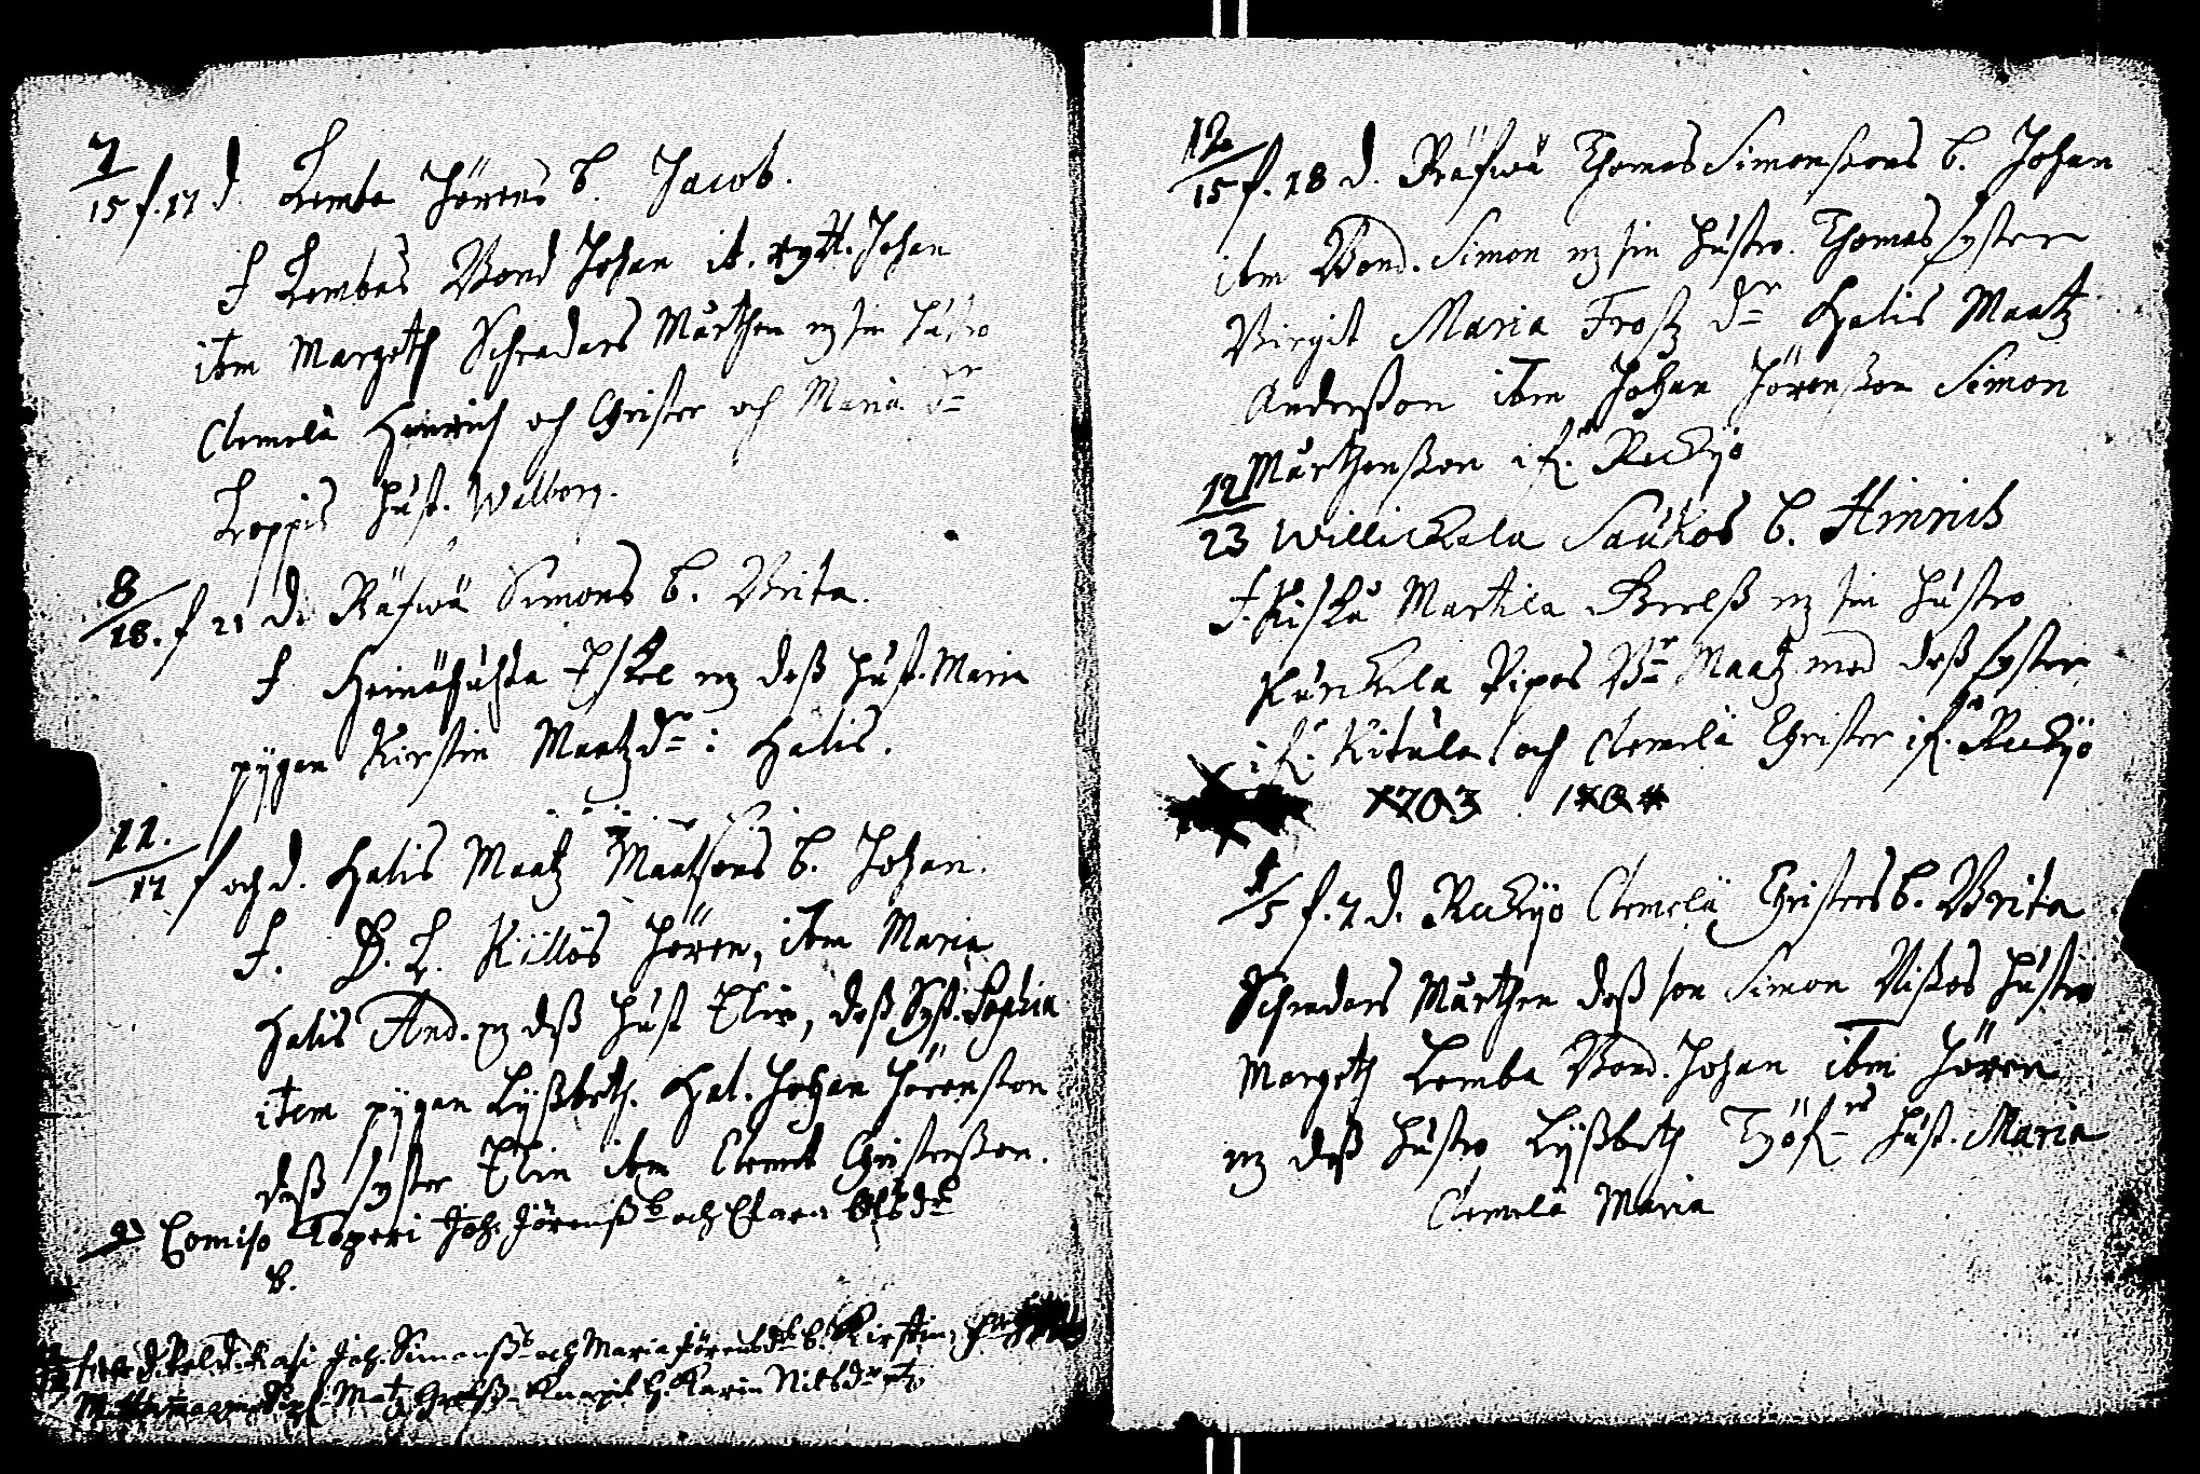 7
15 f. 17 d. Lemba Jörens b. Jacob.
f Lembas Bond Johan it. rytt. Johan
itm Margeth Schraders Mårthen m sin hustro
Clemelä Hinrich och Christer och Maria dr
Loppis hust. Walborg.
8
18. f 21 d. Räfwä Simons b. Brita.
f. Heinäsuhta Eskel m deß hust. Maria
pygan Kirstin Maatzdr: Halis.
11.
17 f och d. Halis Maatz Maatsons b. Johan.
f. B. L. Killös Jören, itm Maria
Halis And. m deß hust Elin, deß Syst. Sophia
item pygan Lyßbeth. Hal. Johan Jörenßon
deß syster Elin itm Clemet Christerßon.
Comiso Toperi Joh. Jörenß och Clara
b.
Joh. Simonß och Maria Jörensdr b. Kirstin,
Matz Knapil H. Karin Nilsdr
12
15 f. 18 d. Räfwä Thomas Simonßons b. Johan
itm Bond. Simon m sin hustro. Thomas syster
Birgit Maria Frostz dr Halis Maatz
Anderßon itm Johan Jörenßon Simon
Mårthenßon if. Reckyö
12
23 Willickala Saukos b. Hinrich
f. Kiskå Martila Brelß m sin hustro
Kurckela Pipos Br Maatz med deß syster
if. Kitula och Clemelä Christer if. Reckyö
1703
1/5 f. 7 d. Reckyö Clemelä Christers b. Brita
Schraders Mårthen deß son Simon Nißos hustro
Margeth Lemba Bond. Johan itm Jören
m deß hustro Lyßbeth Työf hust. Maria
Clemelä Maria